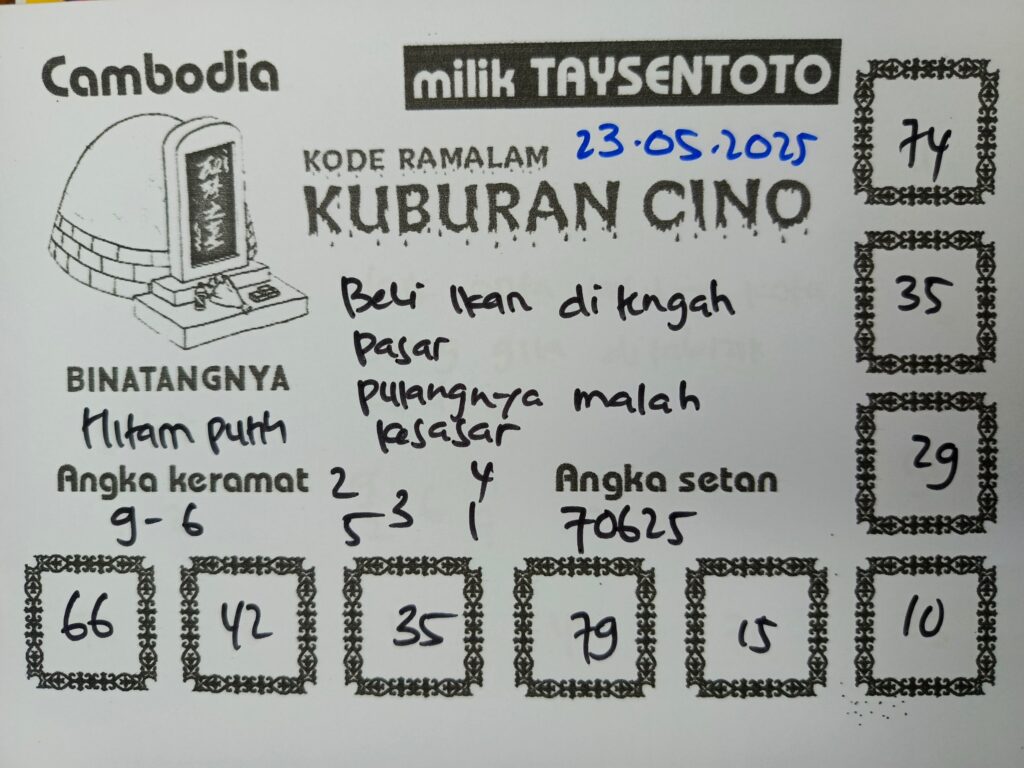 Cambodia
milik TAYSENTOTO
KODE RAMALAM 23.05.2025
KUBURAN CINO
Beli Ikan di tengah
pasar
pulangnya malah
kesasar
BINATANGNYA
Hitam putih
Angka keramat
9-6
2 4
5 3 1
Angka setan
70625
74
35
29
66 42 35 79 15 10